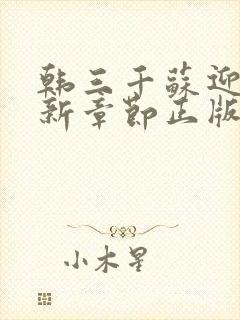 韩三千苏迎
新章节正版
小木星